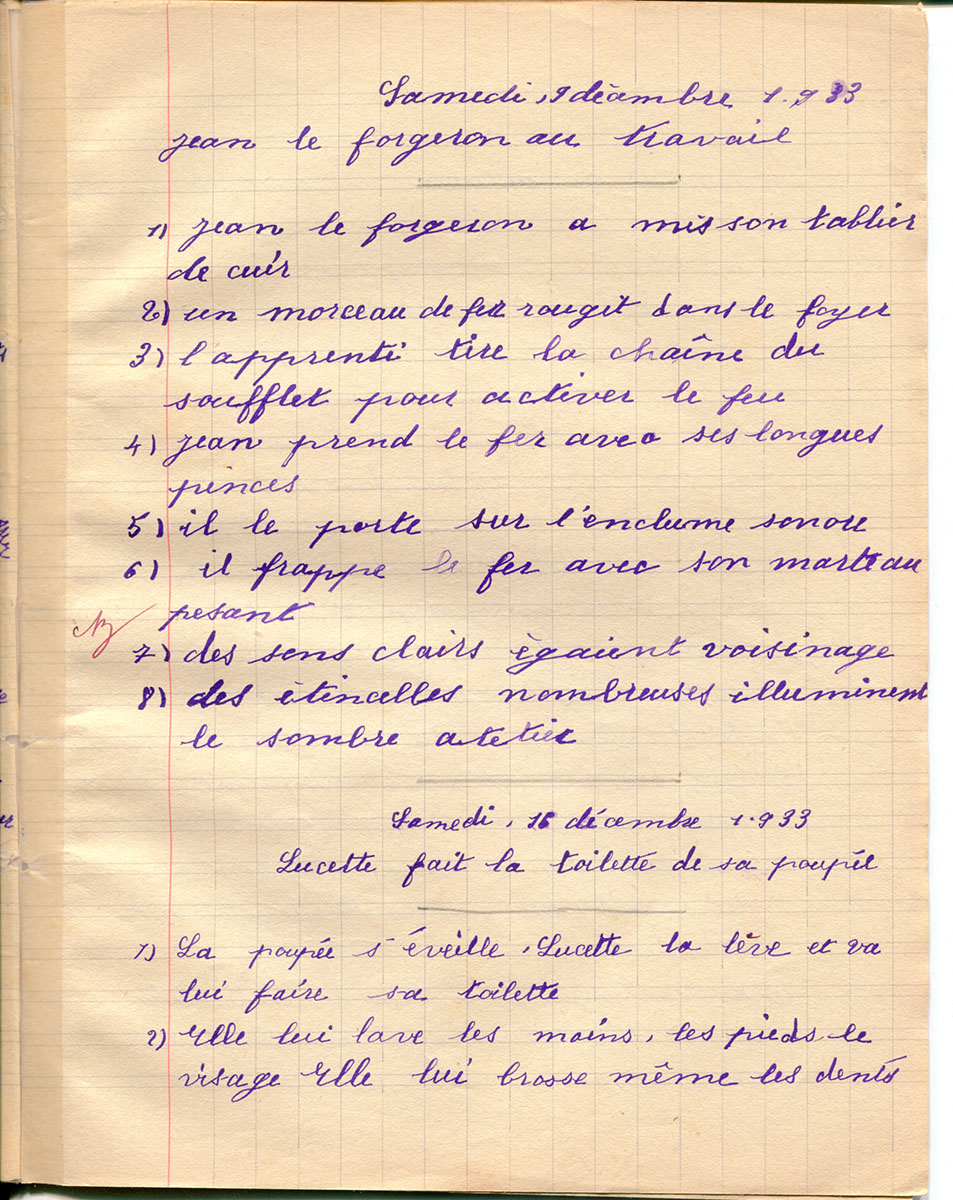 Samedi, 9 déambre 1.933
jean le forgeron au travail
1) jean le forgeron a mis son tablier
de cuir
2) un morceau de fer rougit dans le foyer
3) l'apprenti tire la chaîne du
soufflet pour activer le feu
4) jean prend le fer avec ses longues
pinces
5) il le porte sur l'enclume sonore
6) il frappe le fer avec son marteau
pesant
7) des sons clairs égaient voisinage
8) des étincelles nombreuses illuminent
le sombre atelier
Samedi, 16 décembre 1.933
Lucette fait la toilette de sa poupée
1) La poupée s'éveille. Lucette la lève et va
lui faire sa toilette
2) Elle lui lave les mains, les pieds le
visage Elle lui brosse même les dents